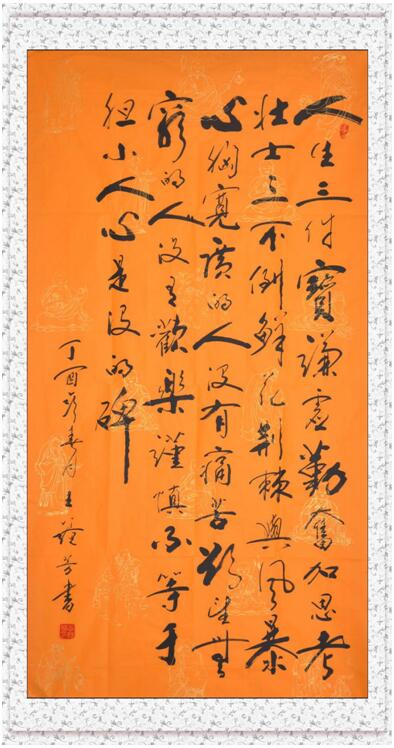 人生三件寶謙虛勤奮加思考
壯士三不倒鮮花荆棘與風暴
心胸寬廣的人没有痛苦欲望無
窮的人没有歡樂謹慎不等于
胆小人心是没的碑
丁酉岁春月王芳書